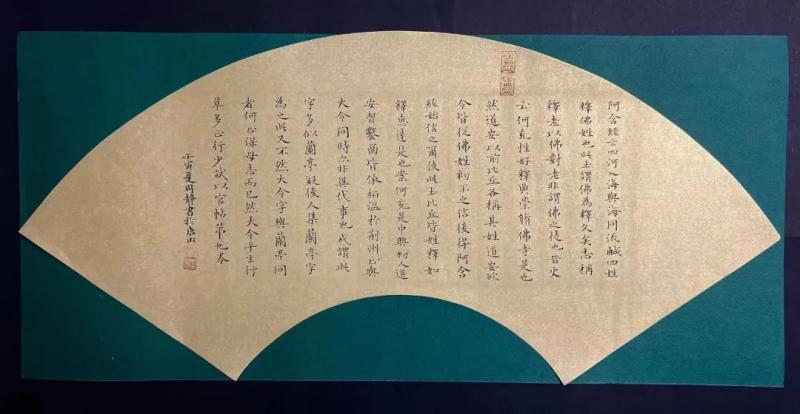 阿含經云四河入海與海同流鹹四姓
釋佛姓也此土謂佛為釋久矣志稱
釋老以佛對老非謂佛之徒也昔史
云何充性好釋典崇脩佛寺是也
然道安以前比丘各稱其姓道安欲
令皆從佛姓初不之信後得阿含
經始信之爾後此土比丘皆姓釋如
釋惠達是也案何充是中興初人道
安習鑿齒皆依桓溫於荆州正與
大令同時亦非異代事也或謂此
字多似蘭亭疑後人集蘭亭字
為之此又不然大令字與蘭亭同
者何止保母志而已然大令平生行
草多正行少試以官帖第九卷
壬寅夏周靜書於唐山